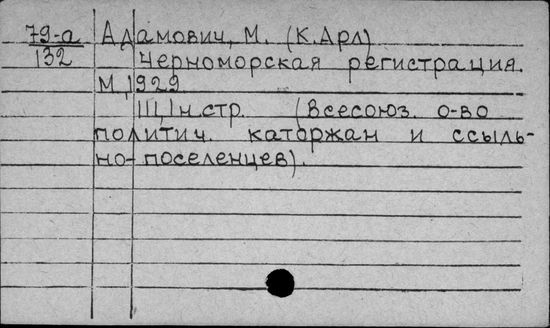 79-а Адамович, М. (К.Арл)
132 Черноморская регистрация.
М, 1929
III, Iн.стр. (Всесоюз. о-во
политич. каторжан и ссыль-
но-поселенцев).